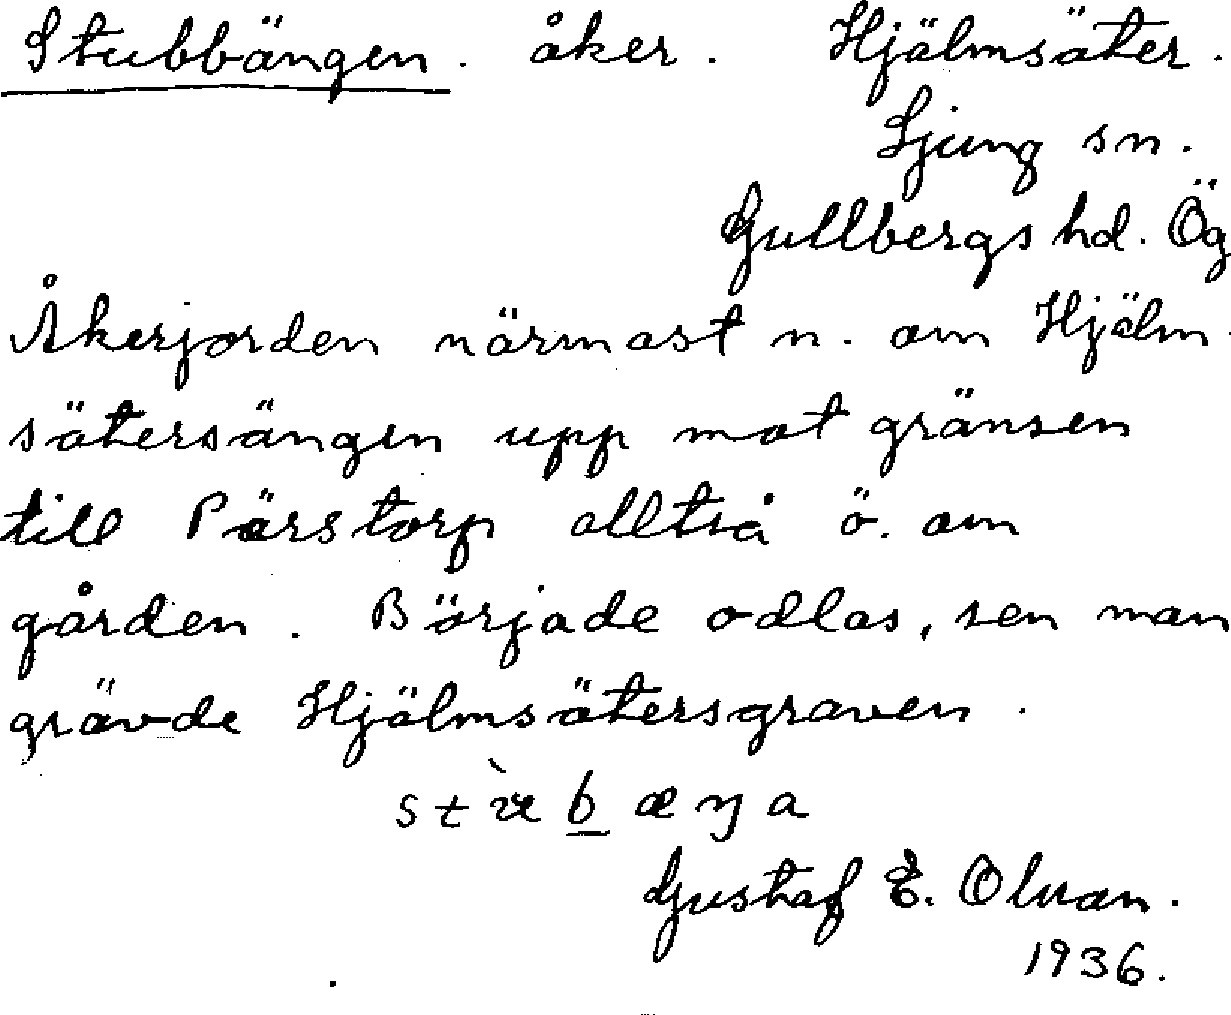 Stubbängen. åker. Hjälmsäter.
Ljung sn.
Gullbergs hd. Ög
Åkerjorden närmast n. om Hjälm-
sätersängen upp mot gränsen
till Pärstorp alltså ö. om
gården. Började odlas, sen man
grävde Hjälmsätersgraven.
Gustaf E. Olsson.
1936.